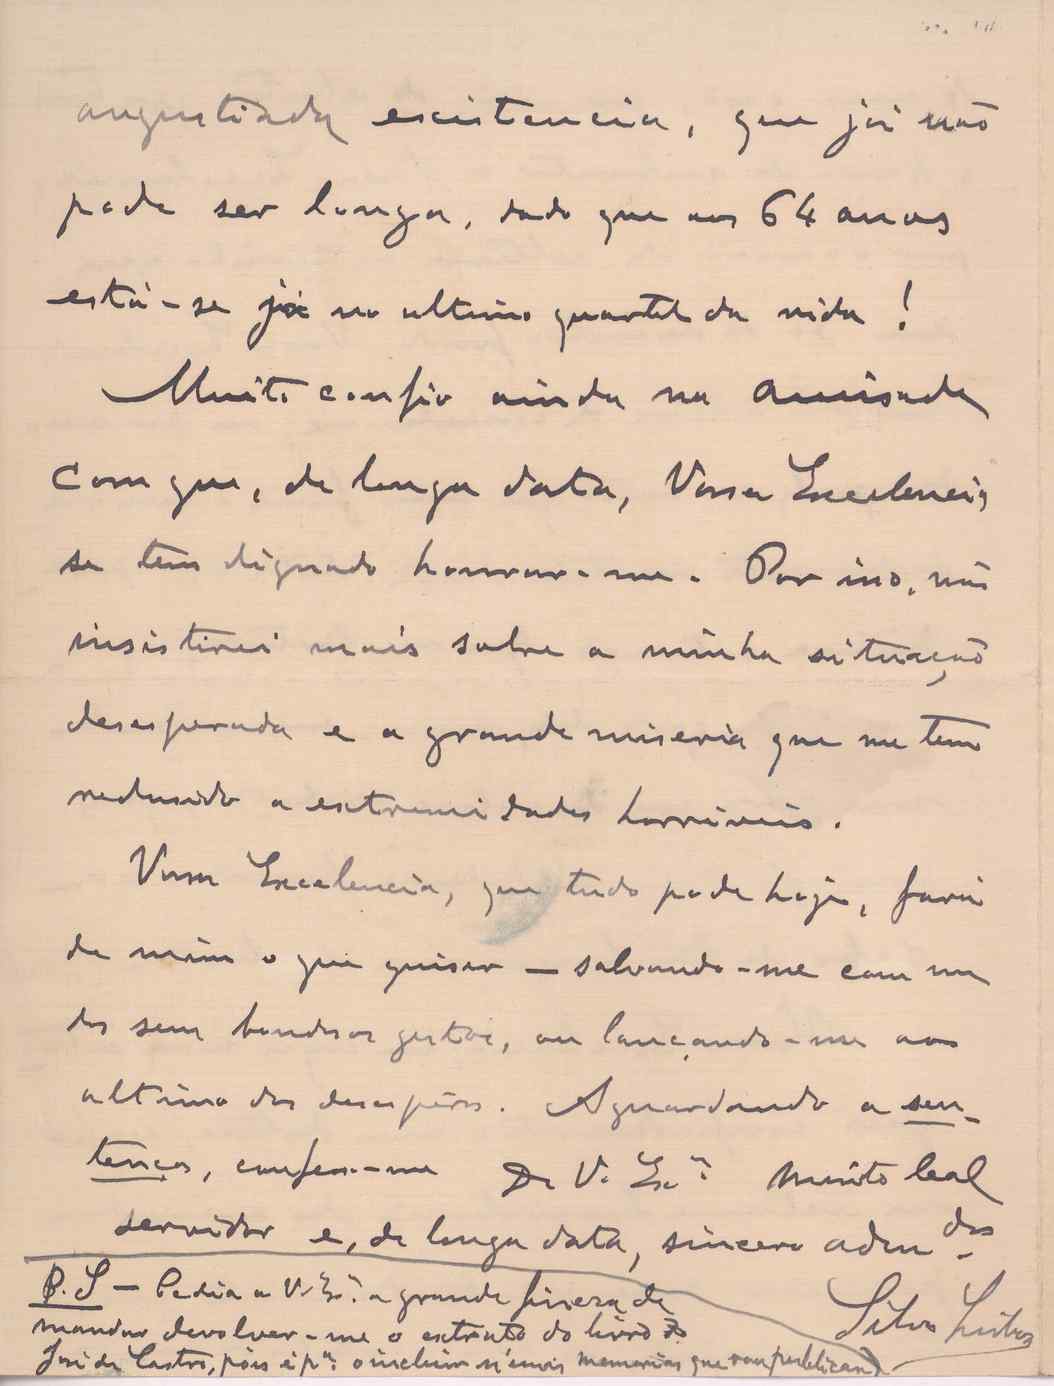 angustiada existencia, que já não
pode ser longa, dado que aos 64 anos
está-se já no ultimo quartel da vida!
Muito confio ainda na amisade
com que, de longa data, Vossa Excelencia
se tem dignado honrar-me. Por isso, não
insistirei mais sobre a minha situação
desesperada e a grande miseria que me tem
redusido a extremidades horriveis.
Vossa Excelencia, que tudo pode hoje, fará
de mim o que quiser — salvando-me com um
dos seus bondosos gestos, ou lançando-me ao
ultimo dos desespêros. Aguardando a sen-
tença, confesso-me De V. Ex.ª Muito leal
servidor e, de longa data, sincero adm dor
P.S — Pedia a V. Ex.ª a grande finesa de
mandar devolver-me o extrato do livro do
José de Castro, pois é p.ª o incluir n'umas memorias que vou publicando
Silva Lisboa